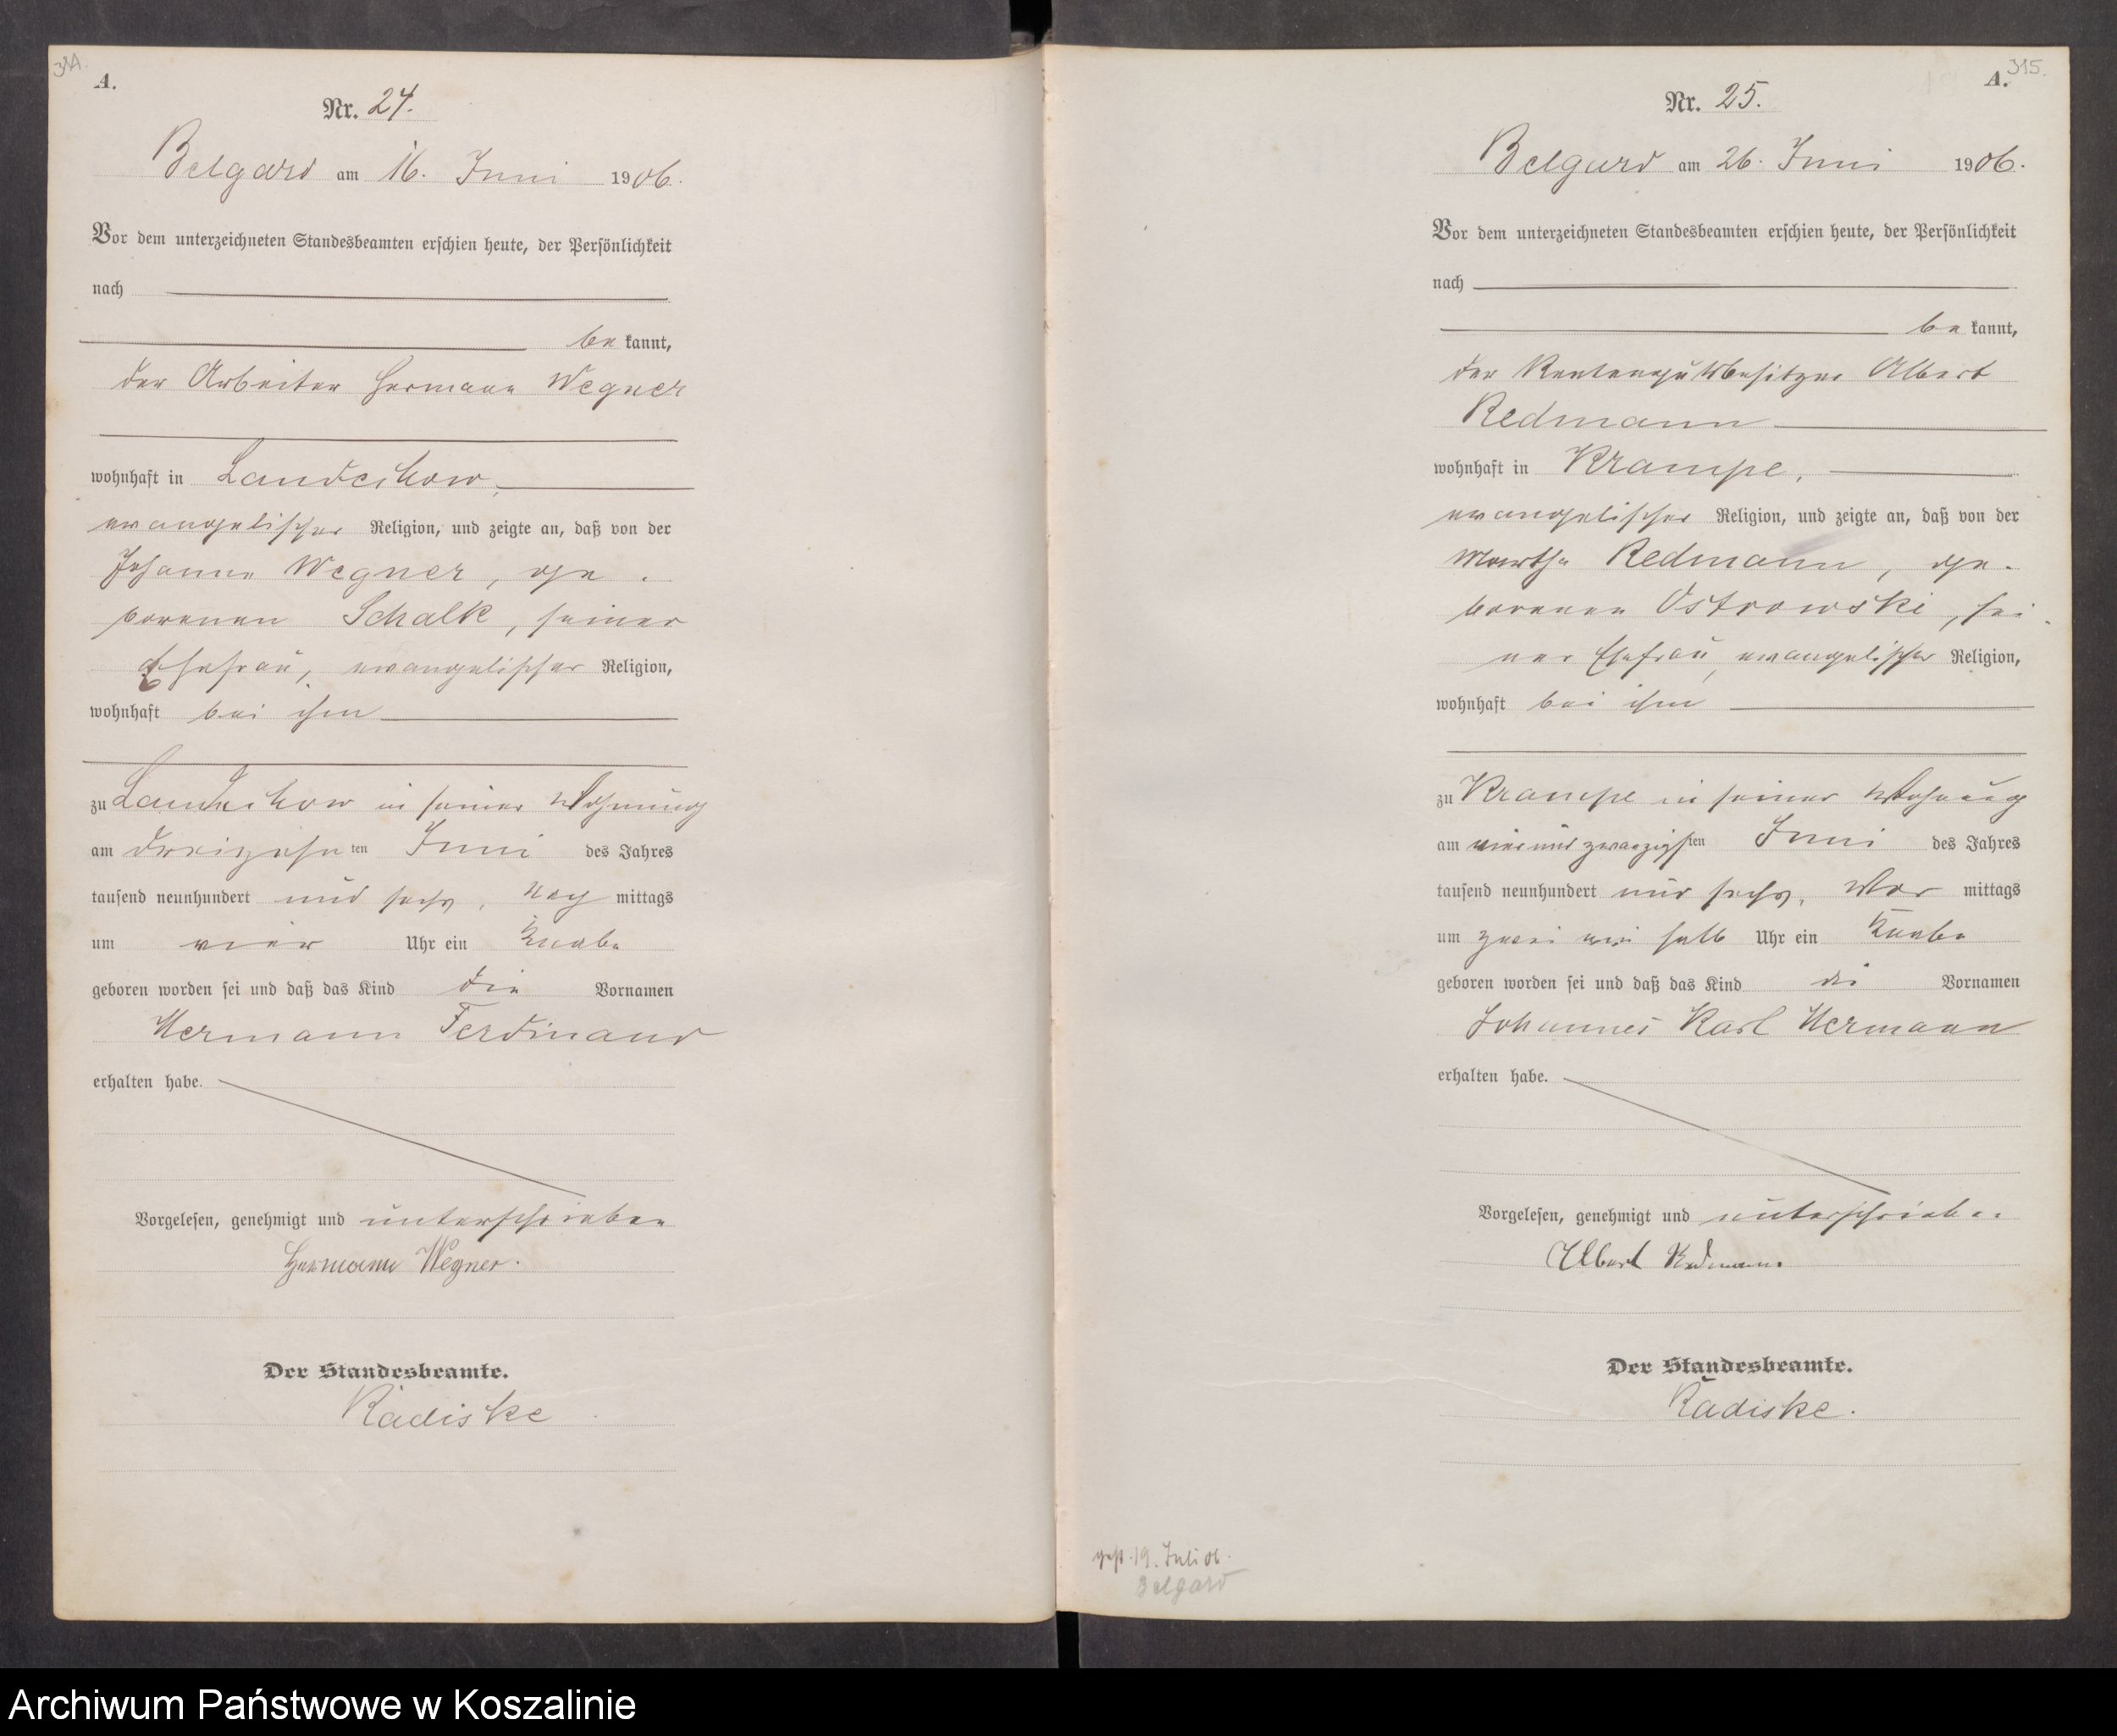 A.
Nr. 24.
Belgard am 16. Juni 1906.
Vor dem unterzeichneten Standesbeamten erschien heute, der Persönlichkeit
nach
be kannt,
der Arbeiter Hermann Wegner
wohnhaft in Landechow,
evangelischer Religion, und zeigte an, daß von der
Johanne Wegner, ge-
borenen Schalk, seiner
Ehefrau, evangelischer Religion,
wohnhaft bei ihm
zu Landechow in seiner Wohnung
am dreizehn ten Juni des Jahres
tausend neunhundert und sechs, Nach mittags
um vier Uhr ein Knabe
geboren worden sei und daß das Kind die Vornamen
Hermann Ferdinand
erhalten habe.
Vorgelesen, genehmigt und unterschrieben
Hermann Wegner.
Der Standesbeamte.
Radiske
A. 315.
Nr. 25.
Belgard am 26. Juni 1906.
Vor dem unterzeichneten Standesbeamten erschien heute, der Persönlichkeit
nach
be kannt,
der Rentengutsbesitzer Albert
Redmann
wohnhaft in Krampe,
evangelischer Religion, und zeigte an, daß von der
Martha Redmann, ge-
borenen Ostrowski, sei-
ner Ehefrau, evangelischer Religion,
wohnhaft bei ihm
zu Krampe in seiner Wohnung
am vierundzwanzigsten Juni des Jahres
tausend neunhundert und sechs, Vor mittags
um zwei ein halb Uhr ein Knabe
geboren worden sei und daß das Kind die Vornamen
Johannes Karl Hermann
erhalten habe.
Vorgelesen, genehmigt und unterschrieben
Albert Redmann
Der Standesbeamte.
Radiske.
19. Juli 06.
Belgard
Archiwum Państwowe w Koszalinie